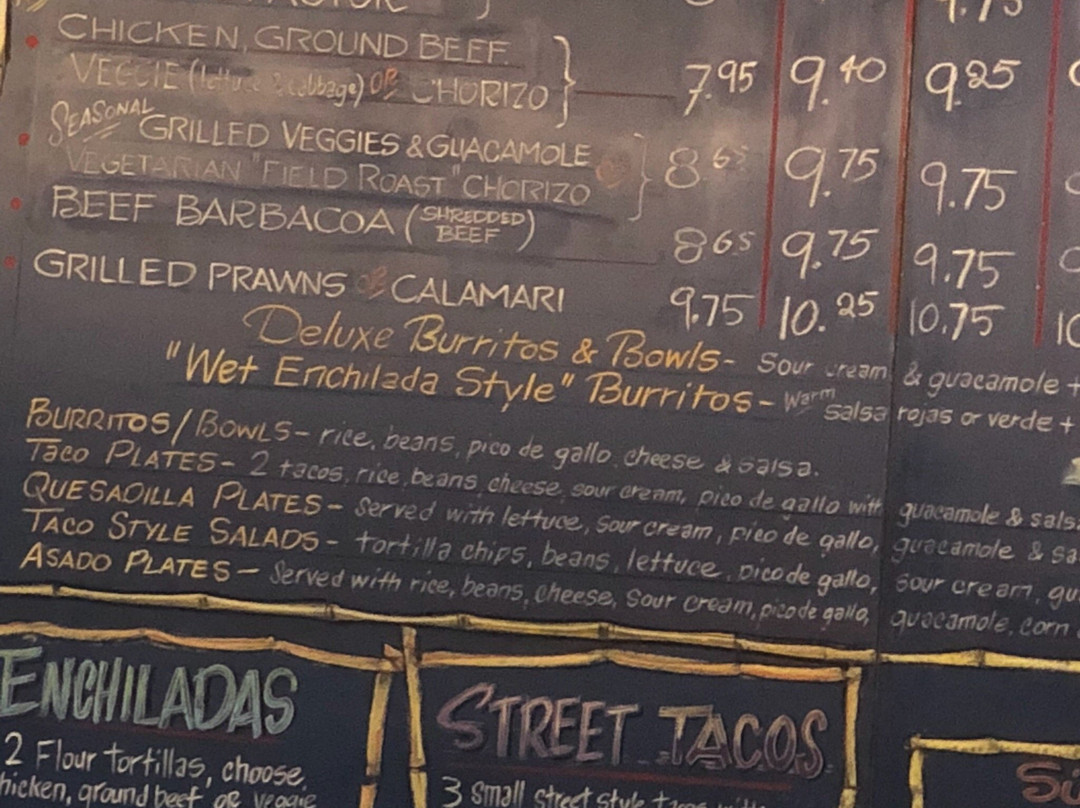 9.75
CHICKEN, GROUND BEEF
VEGGIE (lettuce & cabbage) OR CHORIZO } 7.95 9.40 9.25
SEASONAL GRILLED VEGGIES & GUACAMOLE
VEGETARIAN "FIELD ROAST" CHORIZO } 8.65 9.75 9.75
BEEF BARBACOA (SHREDDED BEEF) 8.65 9.75 9.75
GRILLED PRAWNS or CALAMARI 9.75 10.25 10.75
Deluxe Burritos & Bowls- Sour cream & guacamole +
"Wet Enchilada Style" Burritos- Warm salsa rojas or verde +
BURRITOS/BOWLS- rice, beans, pico de gallo, cheese & salsa.
Taco PLATES- 2 tacos, rice, beans, cheese, sour cream, pico de gallo with guacamole & salsa
QUESADILLA PLATES- Served with lettuce, sour cream, pico de gallo, guacamole & sa
TACO STYLE SALADS- tortilla chips, beans, lettuce, pico de gallo, sour cream, gu
ASADO PLATES- Served with rice, beans, cheese, sour cream, pico de gallo, guacamole, corn
ENCHILADAS
2 Flour tortillas, choose
hicken, ground beef or veggie
STREET TACOS
3 Small street style tacos with